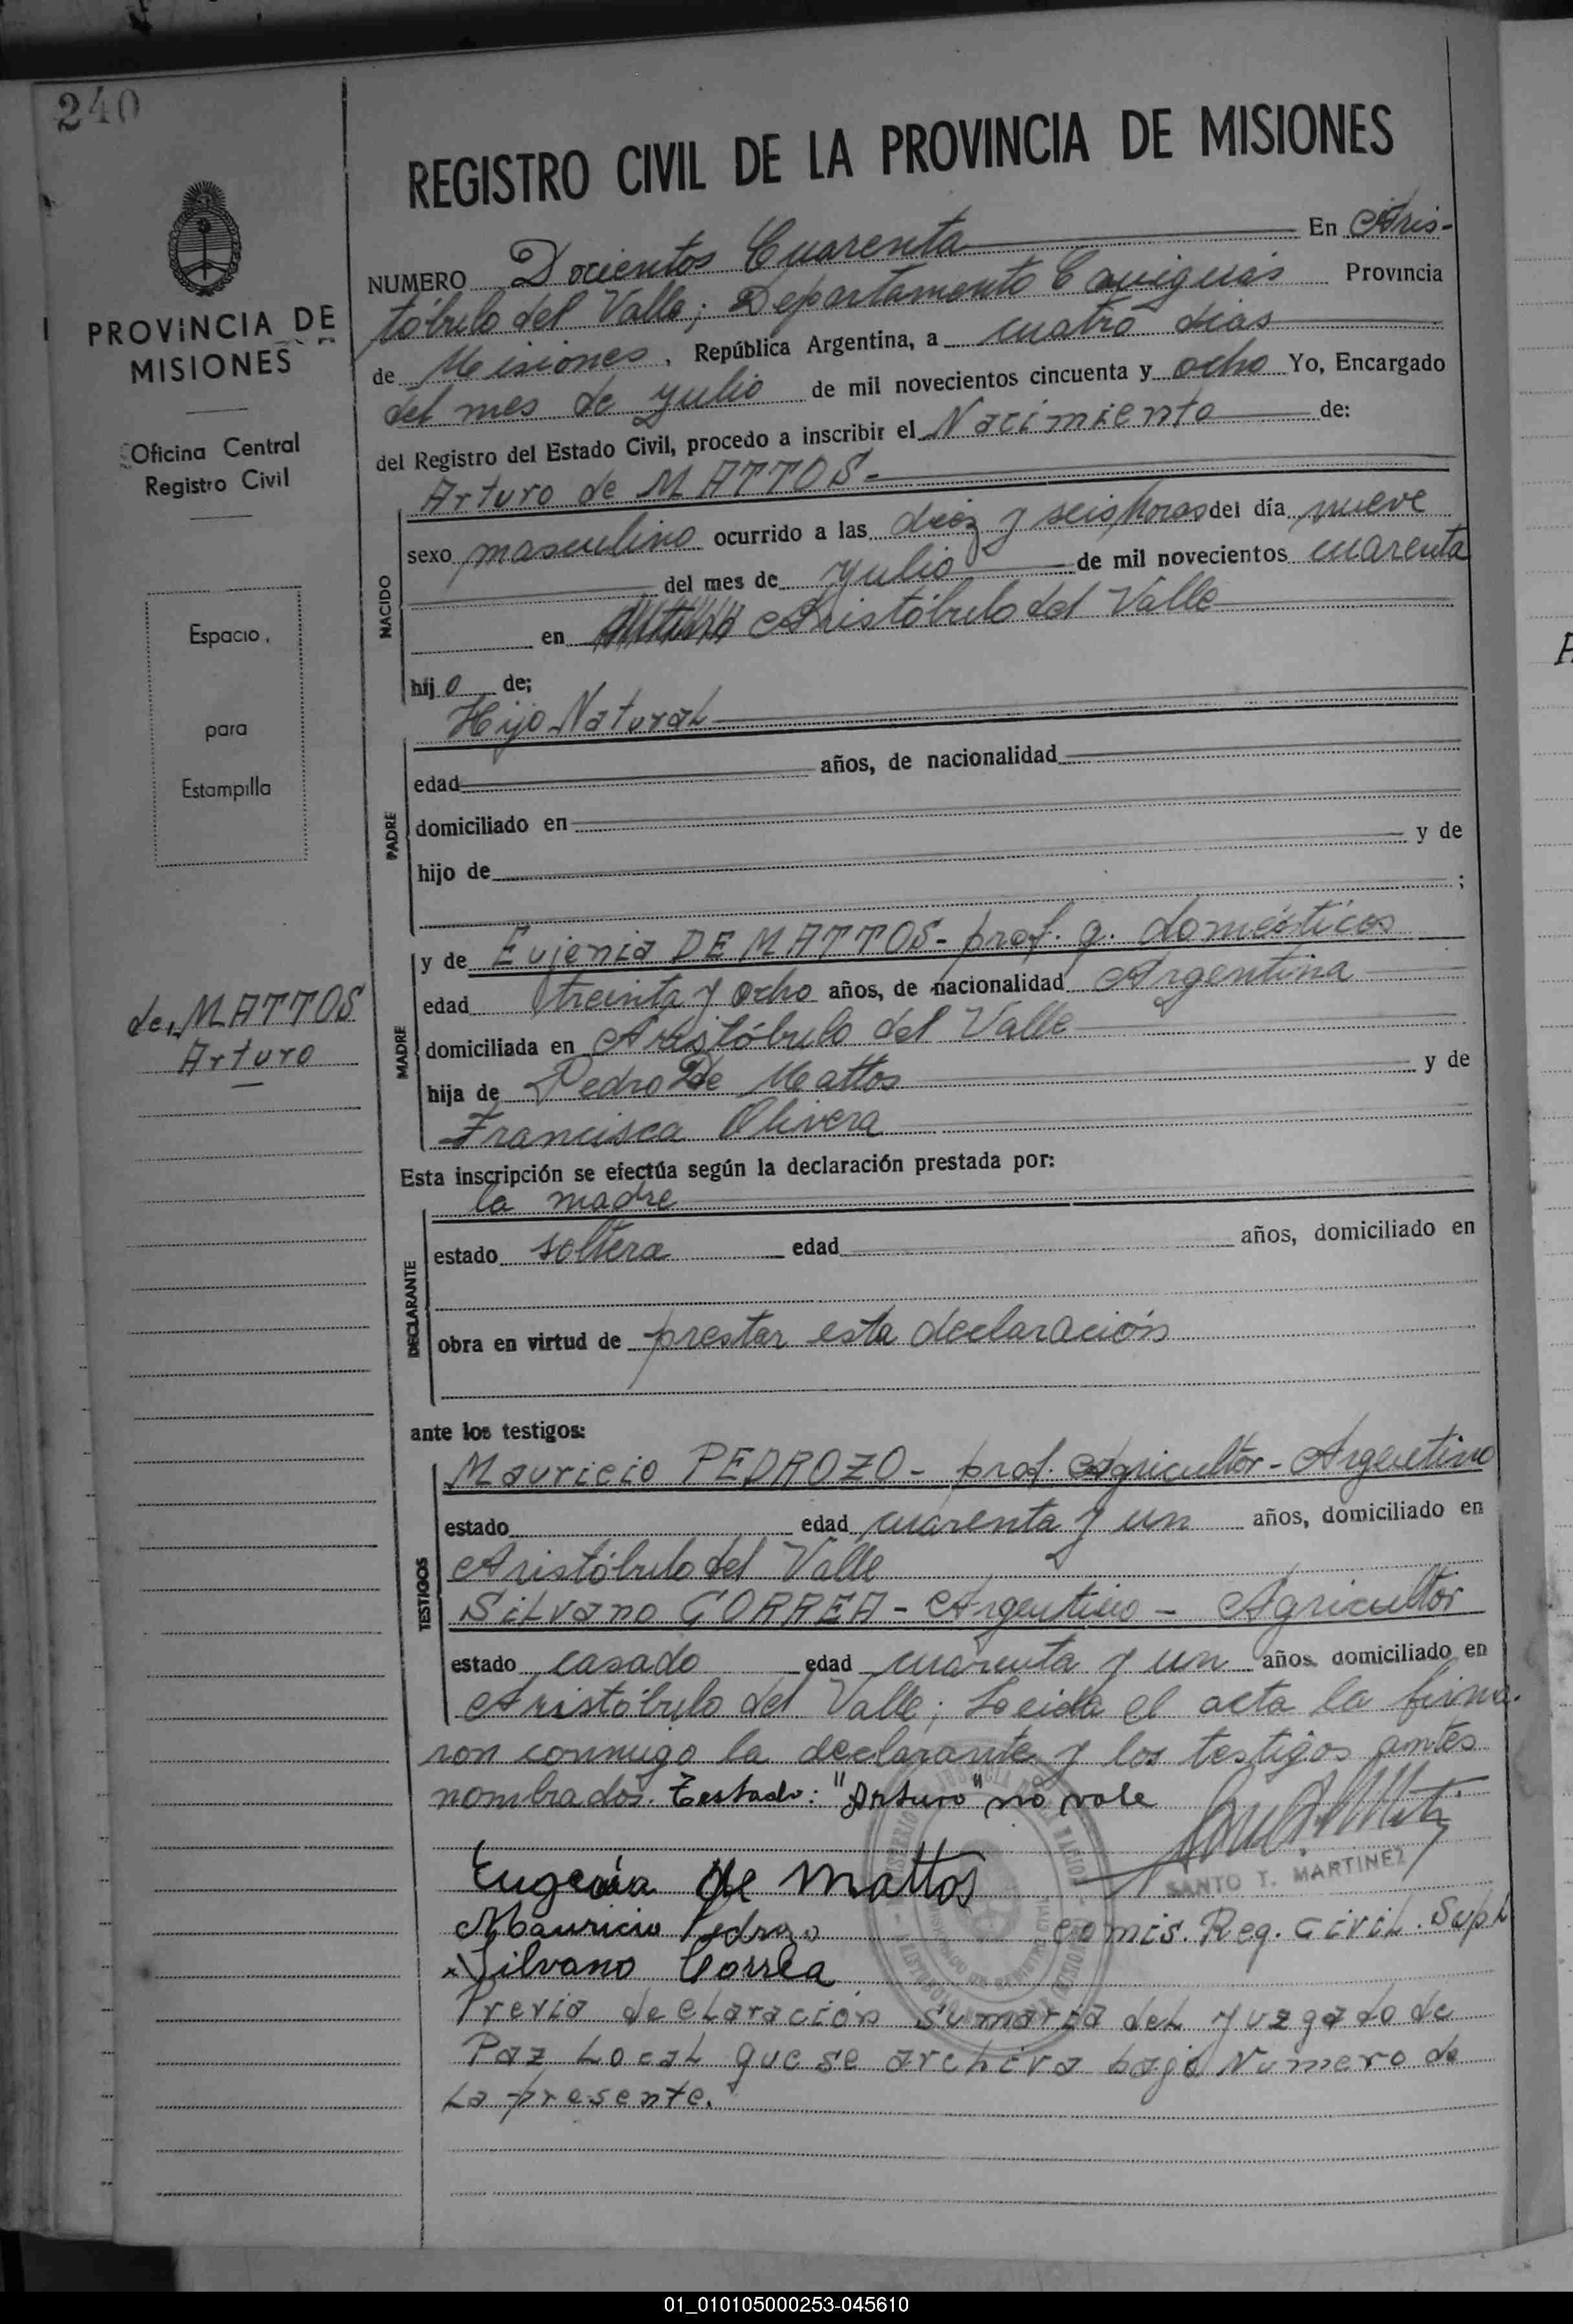 240
REGISTRO CIVIL DE LA PROVINCIA DE MISIONES
PROVINCIA DE
MISIONES
Oficina Central
Registro Civil
Espacio
para
Estampilla
de MATTOS
Arturo
NUMERO Docientos Cuarenta En Aris-
tóbulo del Valle; Departamento Cainguás Provincia
de Misiones, República Argentina, a cuatro dias
del mes de Julio de mil novecientos cincuenta y ocho Yo, Encargado
del Registro del Estado Civil, procedo a inscribir el Nacimiento de:
Arturo de MATTOS-
NACIDO
sexo masculino ocurrido a las diez y seis horas del día nueve
del mes de Julio de mil novecientos cuarenta
en Arturo Aristóbulo del Valle
hij o de;
Hijo Natural
PADRE
edad años, de nacionalidad
domiciliado en
hijo de y de
;
MADRE
y de Eujenia DE MATTOS- prof. q. domésticos
edad treinta y ocho años, de nacionalidad Argentina
domiciliada en Aristóbulo del Valle
hija de Pedro De Mattos y de
Francisca Olivera
Esta inscripción se efectúa según la declaración prestada por:
la madre
DECLARANTE
estado soltera edad años, domiciliado en
obra en virtud de prestar esta declaración
ante los testigos:
TESTIGOS
Mauricio PEDROZO- prof. Agricultor- Argentino
estado edad cuarenta y un años, domiciliado en
Aristóbulo del Valle
Silvano CORREA- Argentino- Agricultor
estado casado edad cuarenta y un años domiciliado en
Aristóbulo del Valle; Leida el acta la firma-
ron conmigo la declarante y los testigos antes
nombrados. Testado: "Arturo" no vale
Eugenia de Mattos
SANTO T. MARTINEZ
Mauricio Pedrozo Comis. Reg. Civil. Supl
x Silvano Correa
Previa declaración sumaria del Juzgado de
Paz Local que se archiva bajo Numero de
La presente.
01_010105000253-045610